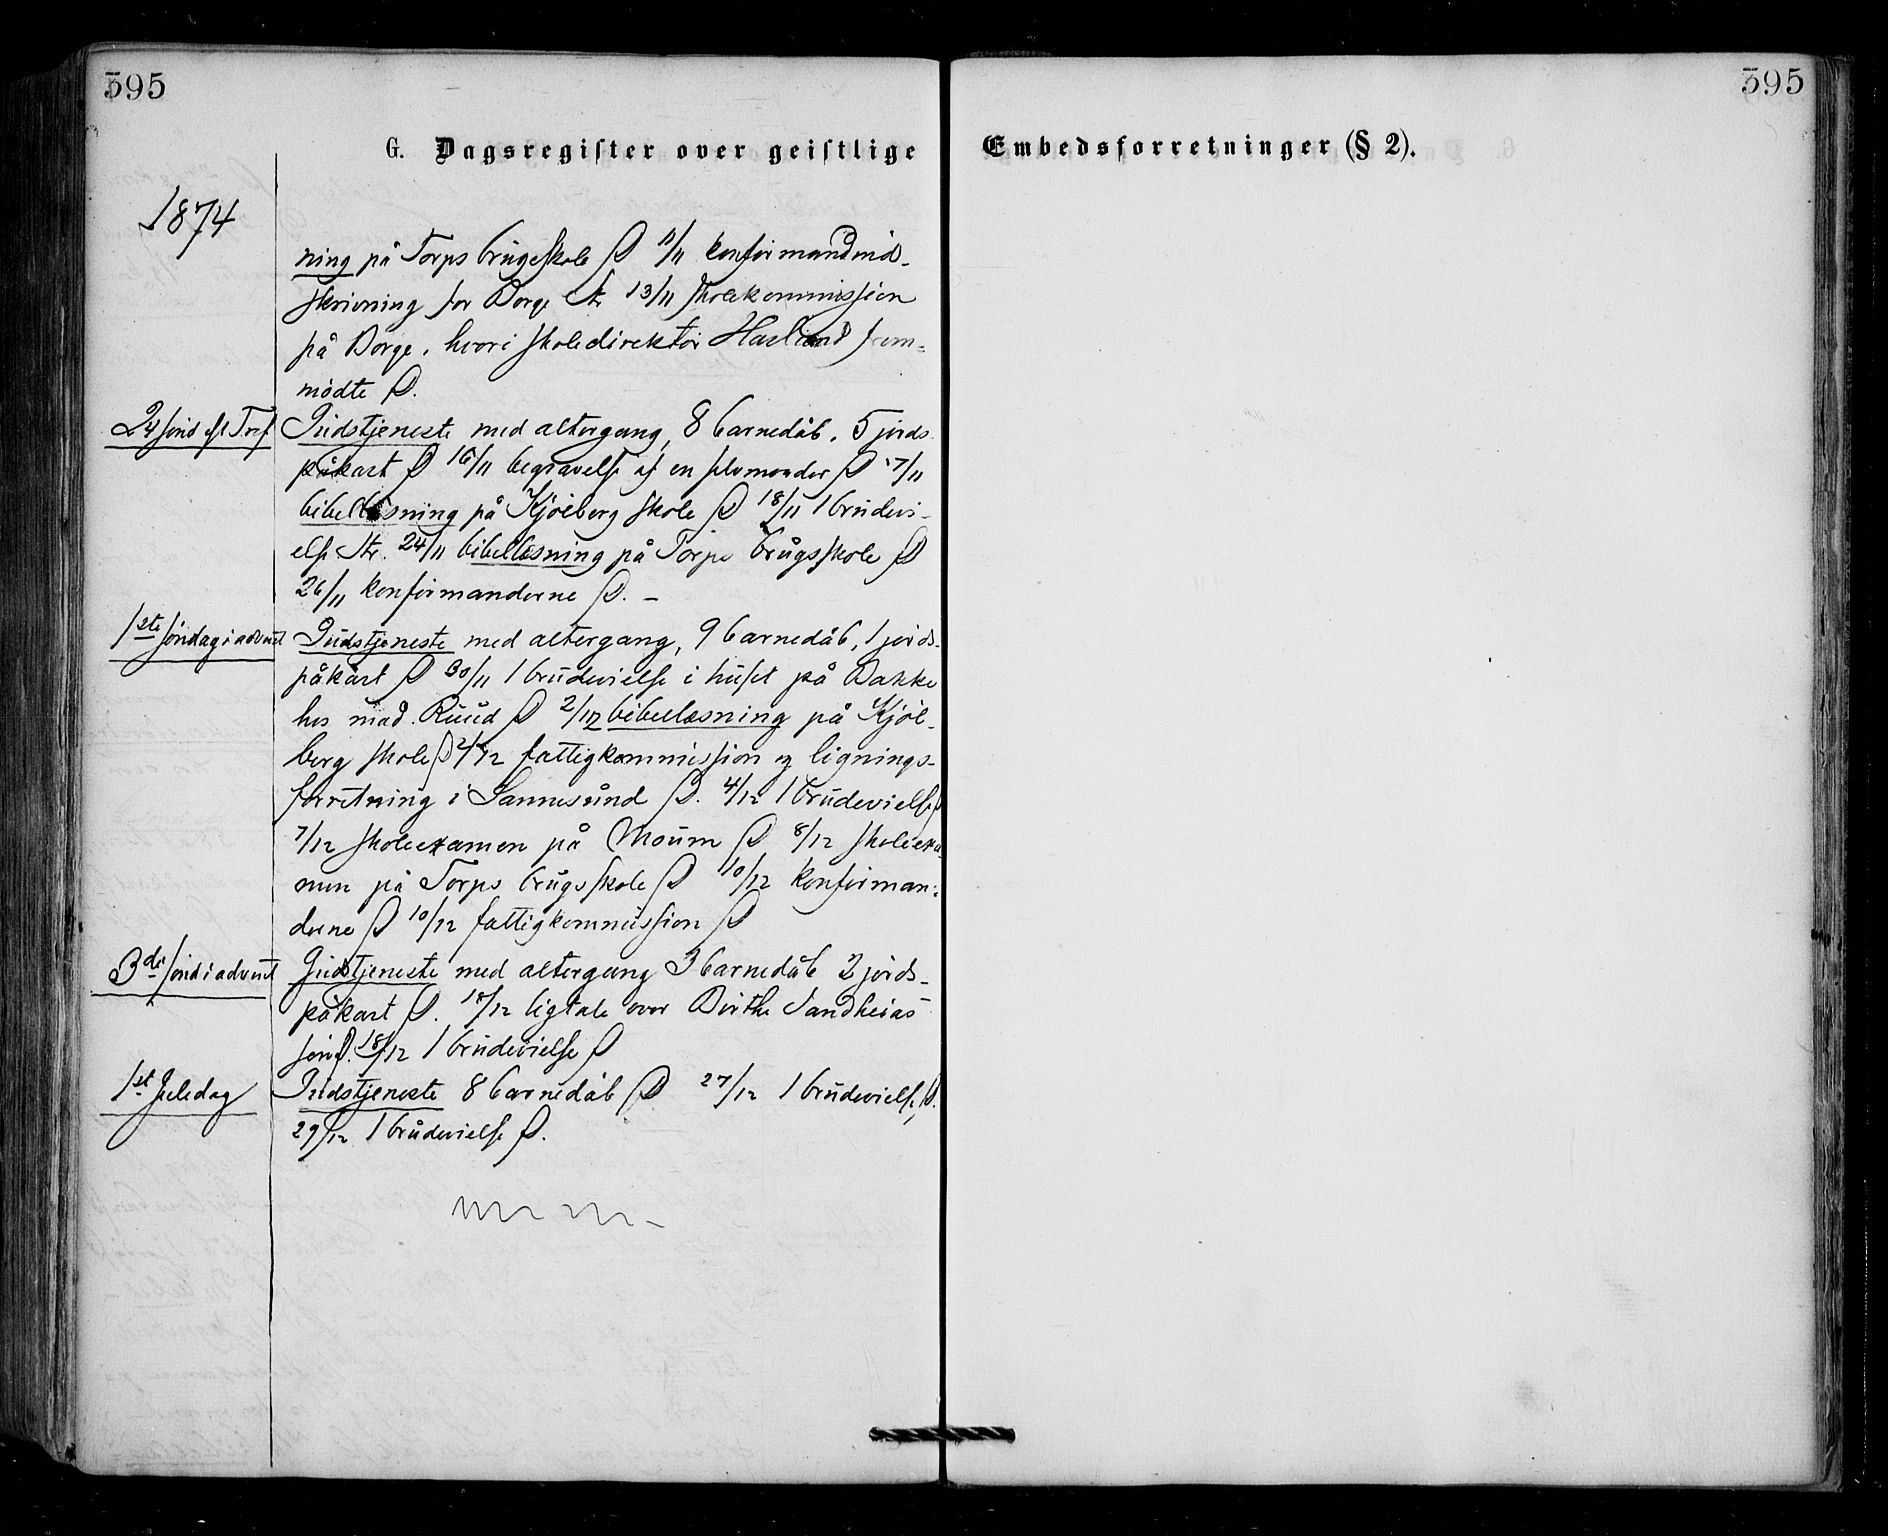 395
395
G. Dagsregister over geistlige Embedsforretninger (§ 2).
1874
ning på Torps brugsskole P 11/11 konfirmandind-
skrivning for Borge Str 13/11 skolekommission
på Borge, hvori skoledirektør frem-
mödte P.
24 sönd eft Tref Gudstjeneste med altergang, 8 barnedåb, 5 jords
påkast P 16/11 begravelse af en selvmorder P 17/11
bibellæsning på Kjölberg skole P 18/11 1 brudevi-
else Str. 24/11 bibellæsning på Torps brugsskole P
26/11 konfirmanderne P. –
1ste söndag i advent Gudstjeneste med altergang, 9 barnedåb, 1 jords-
påkast P 30/11 1 brudevielse i huset på Bakke
hos mad. Ruud P 2/12 bibellæsning på Kjöl-
berg skole P 2/12 fattigkommission og lignings-
forretning i Sannesund P. 4/12 1 brudevielse P
7/12 skoleexamen på Moum P 8/12 skoleexa-
men på Torps brugsskole P 10/12 konfirman-
derne P 10/12 fattigkommission P
3die sönd i advent Gudstjeneste med altergang 3 barnedåb 2 jords-
påkast P. /12 ligtale over Birthe Sandheias
sön P. 18/12 1 brudevielse P
1st Juledag Gudstjeneste 8 barnedåb P 27/12 1 brudevielse P.
29/12 1 brudevielse P.